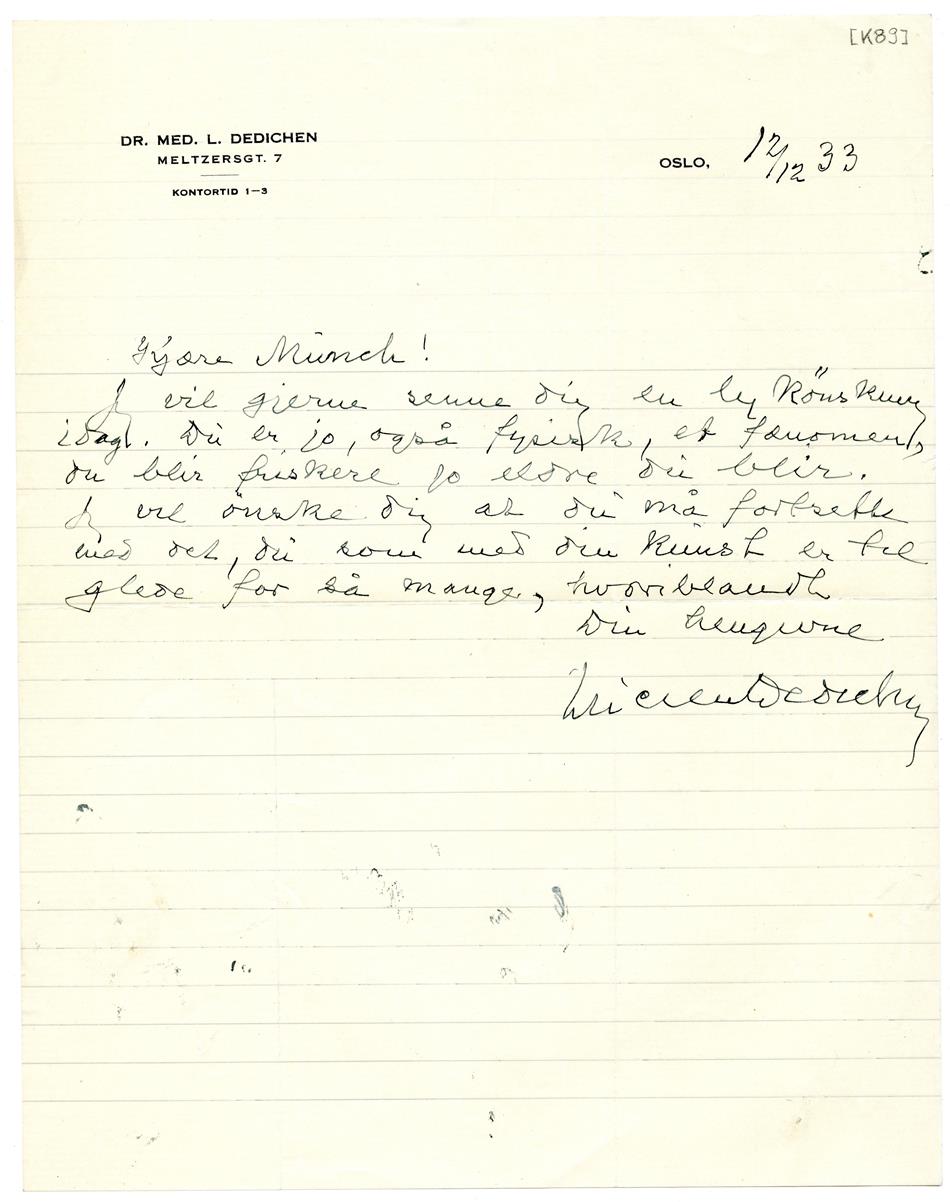 [K89]
DR. MED. L. DEDICHEN
MELTZERSGT. 7
KONTORTID 1–3
OSLO, 12/12 33
Kjære Munch!
Jeg vil gjerne senne dig en lykönskning
idag. Du er jo, også fysisk, et fænomen,
du blir friskere jo eldre du blir.
Jeg vil önske dig at du må fortsette
med det, du som med din kunst er til
glede for så mange, hvoriblandt
Din hengivne
Lucien Dedichen